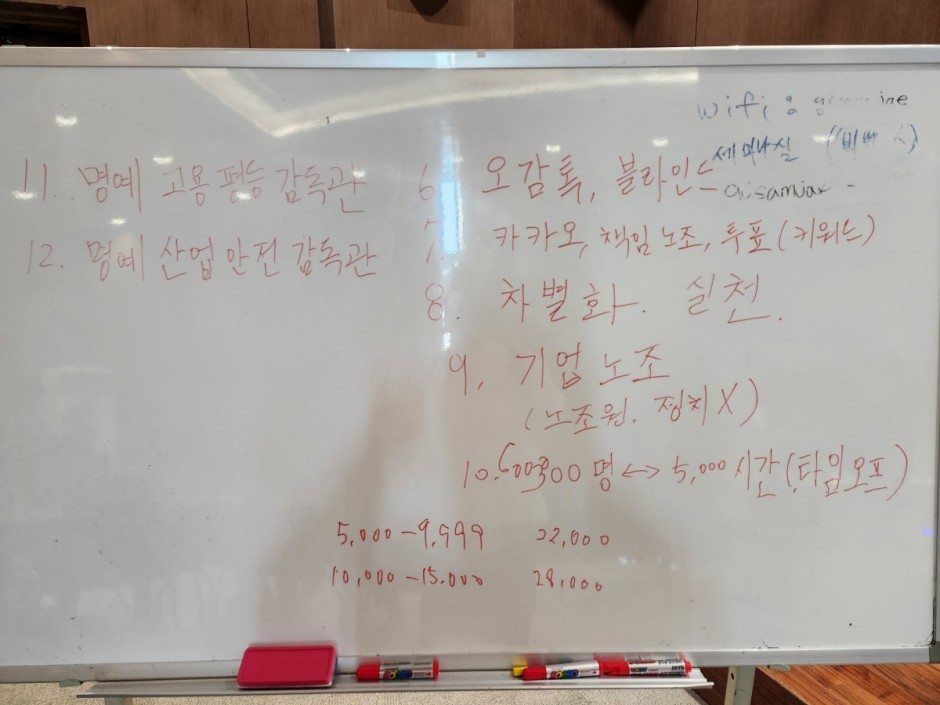 wifi :
세미나실
11. 명예 고용 평등 감독관
12. 명예 산업 안전 감독관
6. 오감톡, 블라인드
7. 카카오, 책임 노조, 투표 (키워드)
8. 차별화. 실천.
9. 기업 노조
(노조원. 정치 X)
10. 명 <-> 5,000 시간 (타임오프)
5,000 - 9,999 22,000
10,000 - 15,000 28,000